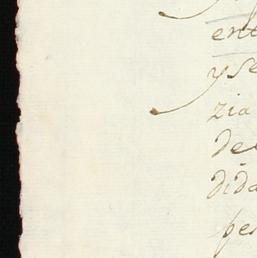 ent
y se
zia
de
dida
pe